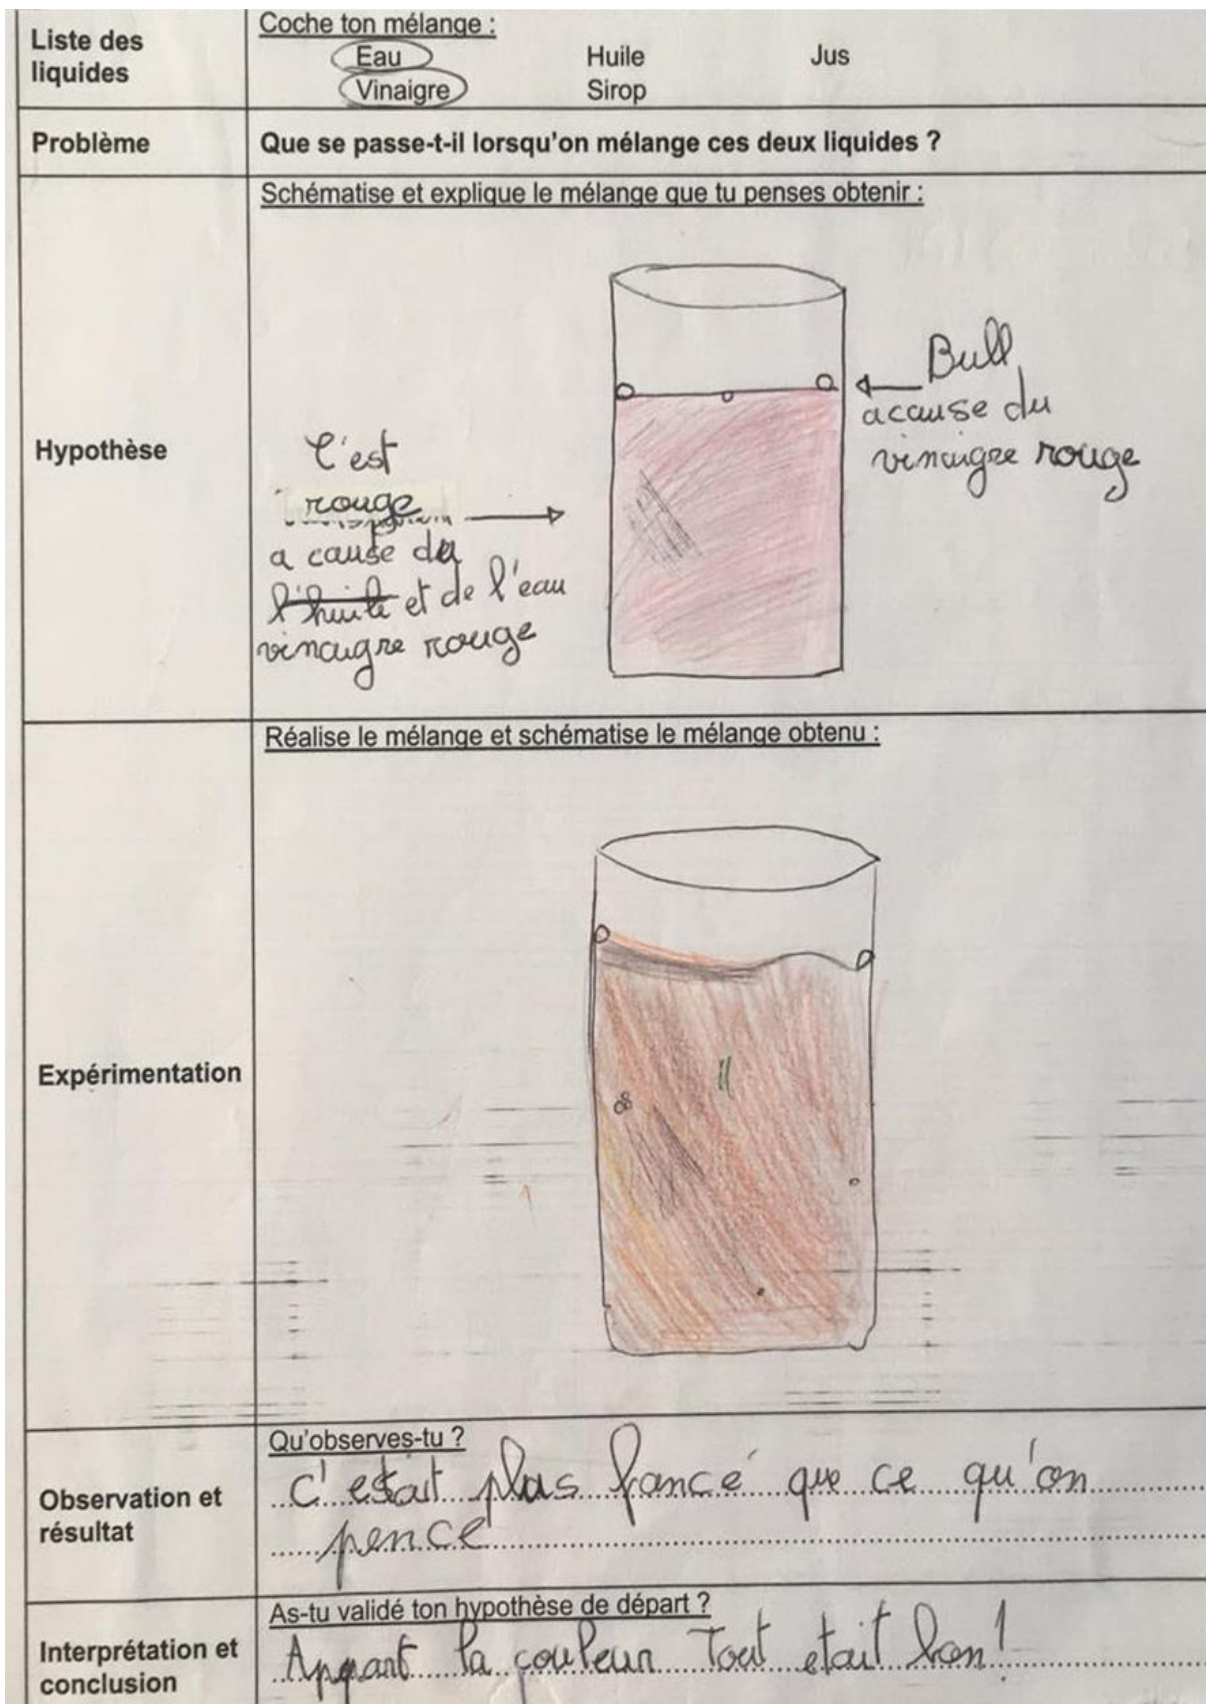 Liste des liquides
Coche ton mélange :
Eau Huile Jus
Vinaigre Sirop
Problème
Que se passe-t-il lorsqu'on mélange ces deux liquides ?
Hypothèse
Schématise et explique le mélange que tu penses obtenir :
C'est
rouge
a cause du
l'huile et de l'eau
vinaigre rouge
Bull
acause du
vinaigre rouge
Expérimentation
Réalise le mélange et schématise le mélange obtenu :
Observation et
résultat
Qu'observes-tu ?
C'estait plus foncé que ce qu'on
pence
Interprétation et
conclusion
As-tu validé ton hypothèse de départ ?
Appart la couleur Tout etait bon!